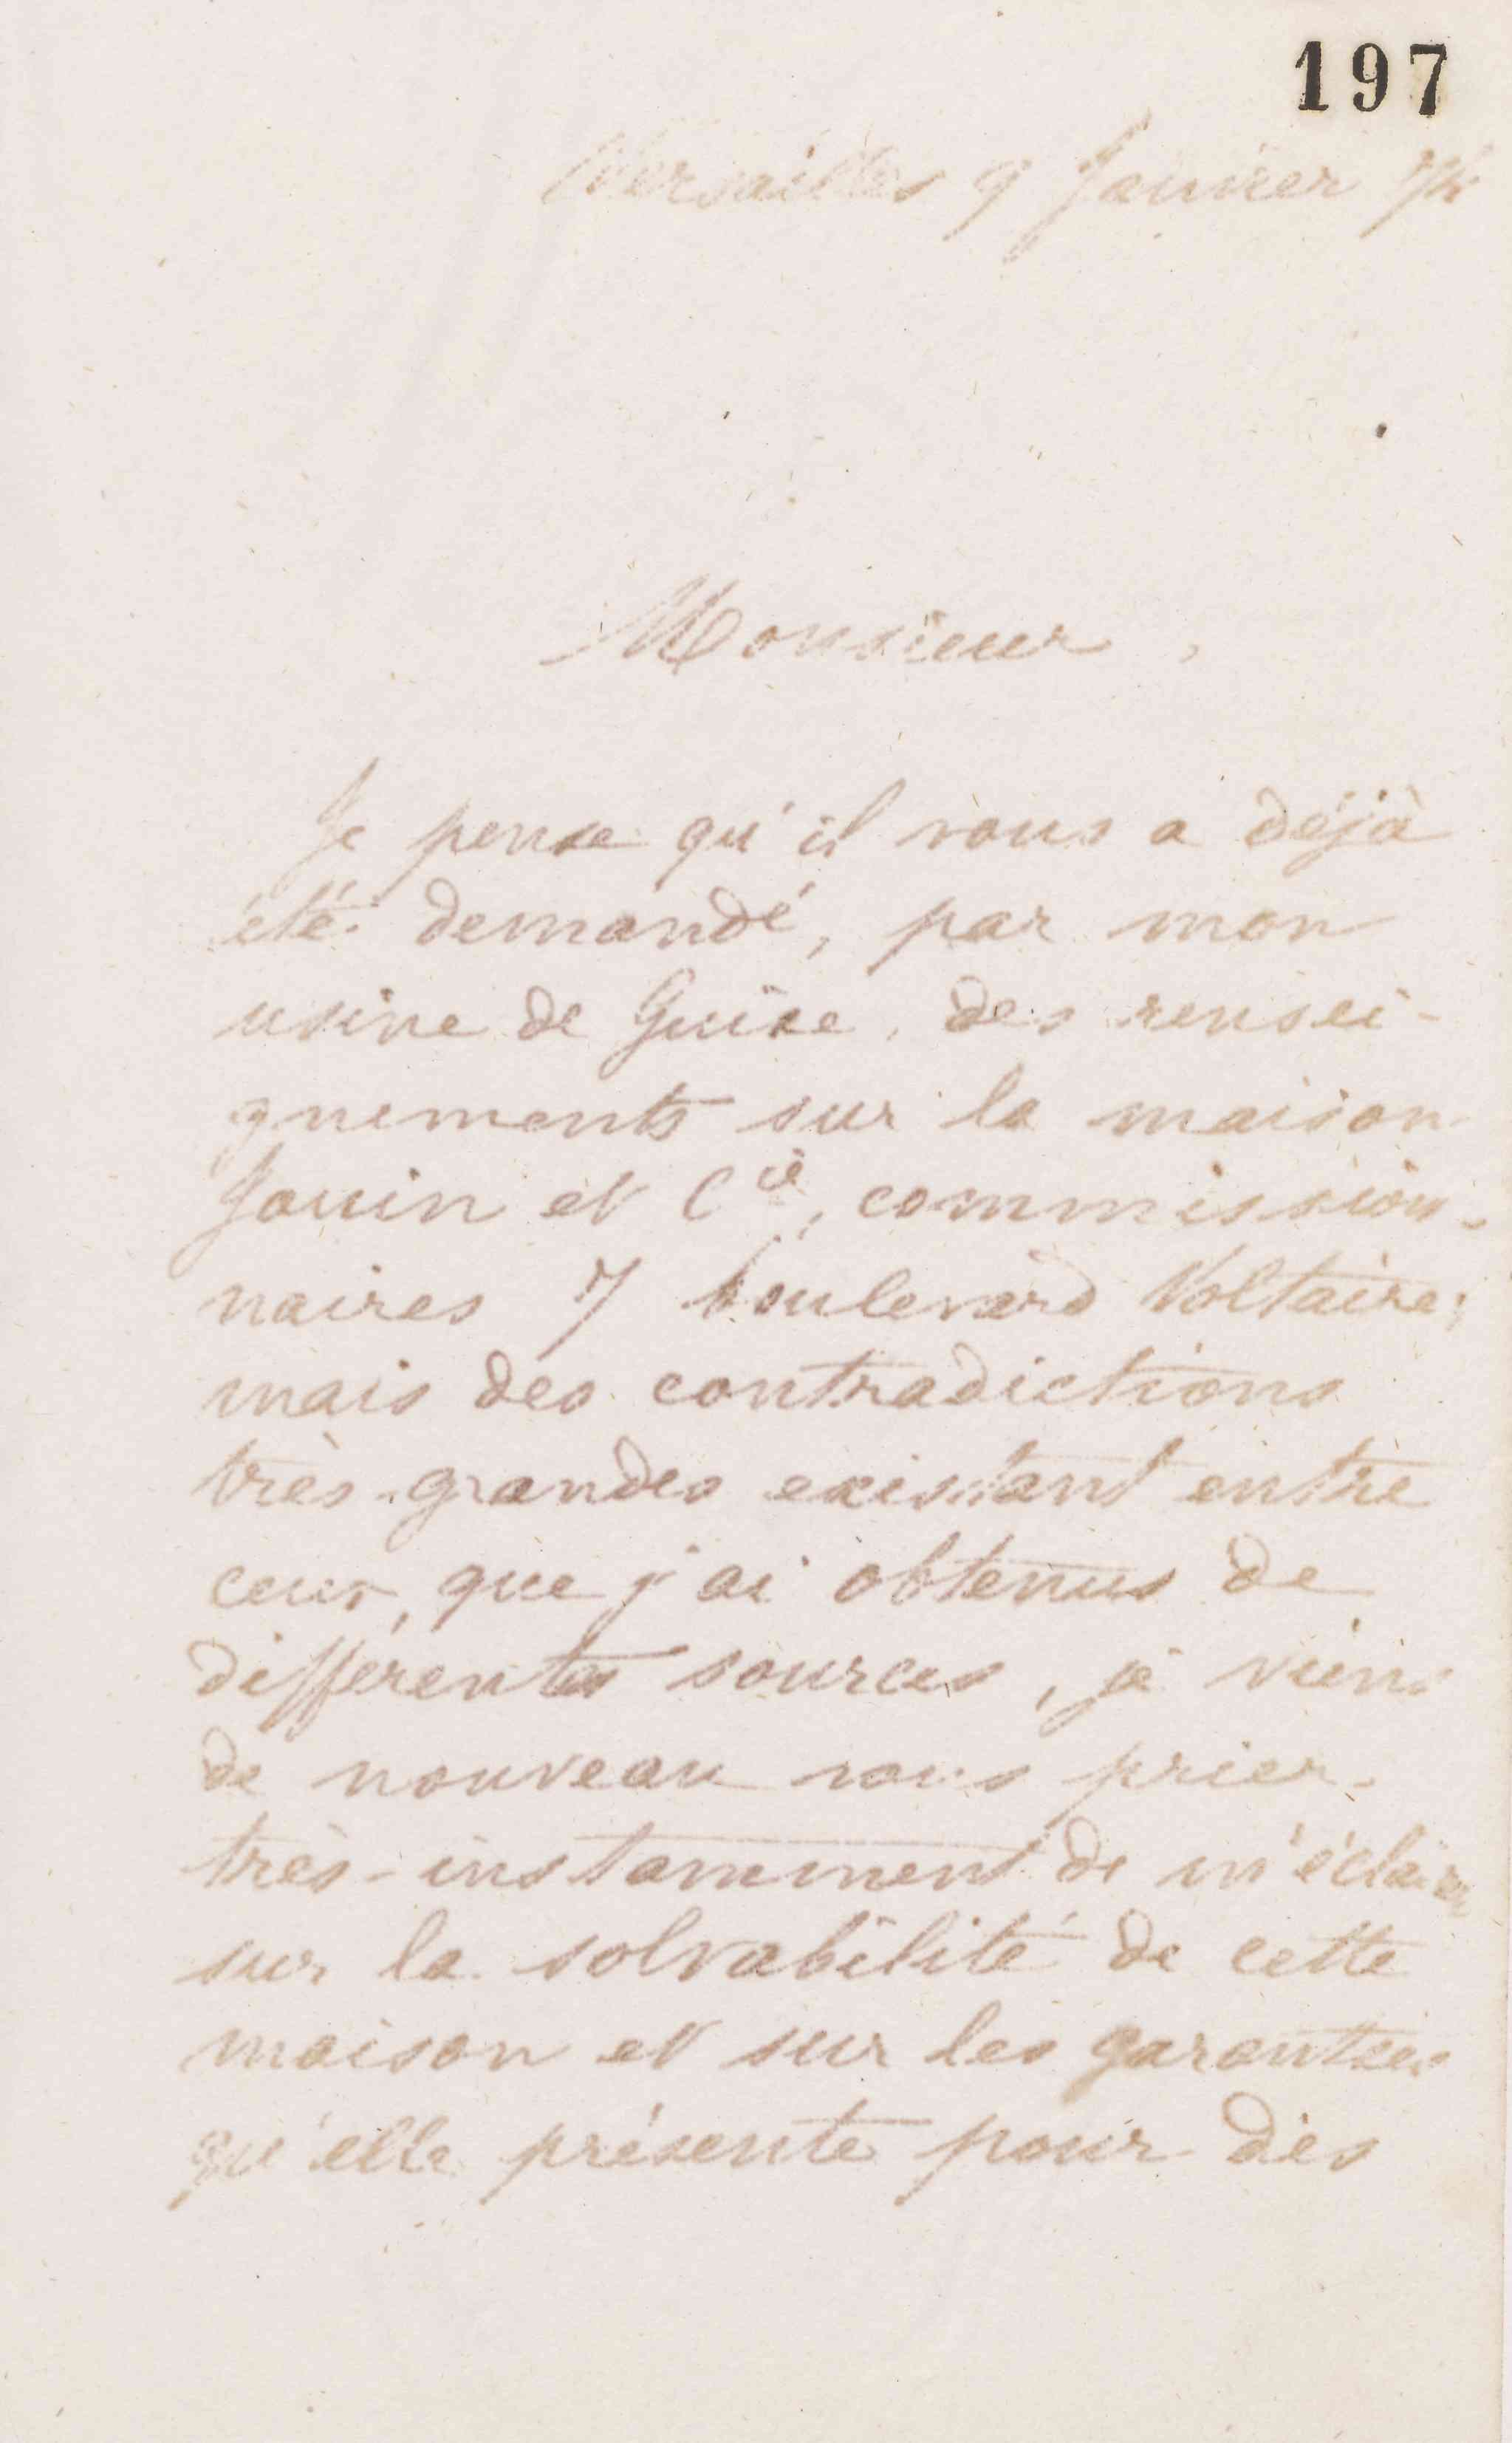 197
Versailles 9 Janvier 74
Monsieur,
Je pense qu'il vous a déjà
été demandé, par mon
usine de Guise, des rensei-
gnements sur la maison
Jouin et Cie, commission-
naires 7 boulevard Voltaire;
mais des contradictions
très-grandes existant entre
ceux, que j'ai obtenus de
différentes sources, je viens
de nouveau vous prier
très-instamment de m'éclairer
sur la solvabilité de cette
maison et sur les garanties
qu'elle présente pour des